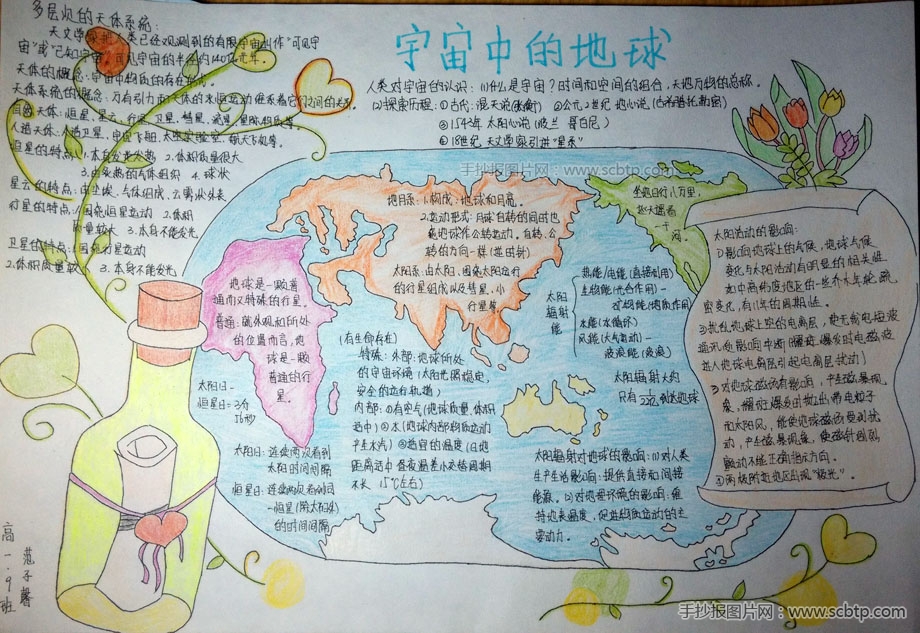 多层次的天体系统：
天文学家把人类已经观测到的有限宇宙叫作"可见宇
宙"或"已知宇宙"。可见宇宙的半径约140亿光年。
天体的概念：宇宙中物质的存在形式。
天体系统的概念：万有引力和天体的永恒运动维系着它们之间的关系。
自然天体：恒星、星云、行星、卫星、彗星、流星、星际物质等。
人造天体：人造卫星、宇宙飞船、太空实验室、航天飞机等。
恒星的特点：1.本身发光发热 2.体积质量很大
3.由炽热的气体组织 4.球状
星云的特点：由尘埃、气体组成，云雾状外表
行星的特点：1.围绕恒星运动 2.体积
质量较大 3.本身不能发光
卫星的特点：1.围绕行星运动
2.体积质量较小 3.本身不能发光
宇宙中的地球
人类对宇宙的认识：(1)什么是宇宙？时间和空间的组合，天地万物的总称。
(2)探索历程：①古代：浑天说(张衡) ②公元2世纪 地心说(古希腊托勒密)
③1543年 太阳心说(波兰 哥白尼)
④18世纪，天文学家引进"星系"
手抄报图片网：www.scbtp.com
地月系：1.构成：地球和月亮。
2.运动形式：月球自转的同时也
龟地球作公转运动，自转、公
转的方向一样(逆时针)
太阳系：由太阳、围绕太阳运行
的行星组成以及彗星、小
行星等
坐地日行八万里，
巡天遥看
一千河。
地球是一颗普
通而又特殊的行星。
普通：就外观和所处
的位置而言，地
球是一颗
普通的行
星。
(有生命存在)
特殊：外部：地球所处
的宇宙环境(太阳光照稳定，
安全的运行轨道)
内部：①有空气(地球质量、体积
适中) ②水(地球内部物质运动
产生水汽) ③适宜的温度(日地
距离适中 昼夜温差小 自转周期
不长 15℃左右)
太阳日-
恒星日=3分
56秒
太阳日：连续两次看到
太阳时间间隔
恒星日：连续两次看到同
一恒星(除太阳外)
的时间间隔
太阳
辐射
能
热能/电能(直接利用)
生物能(光合作用)-
矿物能(地质作用)
水能(水循环)
风能(大气运动)-
波浪能(波浪)
太阳辐射大约
只有 到达地球
太阳辐射对地球的影响：(1)对人
生产生活影响：提供直接和间接
能源。(2)对地理环境的影响：维
持地表温度，促进物质运动的主
要动力。
太阳活动的影响：
①影响地球上的气候，地球气候
变化与太阳活动有明显的相关性
如中高纬度地区的一些乔木年轮疏
密变化，有11年的周期性。
②扰乱地球上空的电离层，使无线电短波
通讯受影响中断(耀斑爆发时电磁波
进入地球电离层引起电离层扰动)
③对地球磁场有影响，产生磁暴现
象，耀斑爆发时抛出带电粒子
和太阳风，能使地球磁场受到扰
动，产生磁暴现象，使磁针剧烈
颤动不能正确指示方向。
④两极附近地区出现"极光"。
高一·9班
范子馨
手抄报图片网：www.scbtp.com